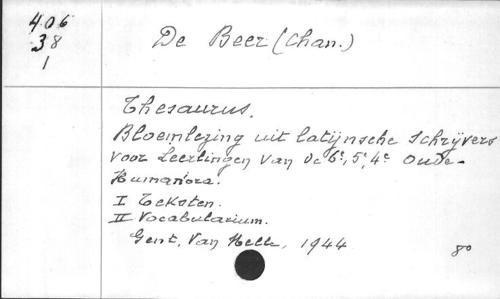 406
38
1
De Beer (Chan.)
Thesaurus.
Bloemlezing uit latijnsche schrijvers
voor Leerlingen van de 6e, 5e, 4e Oude-
Humaniora.
I Teksten.
II Vocabularium.
Gent, Van Helle, 1944
8o